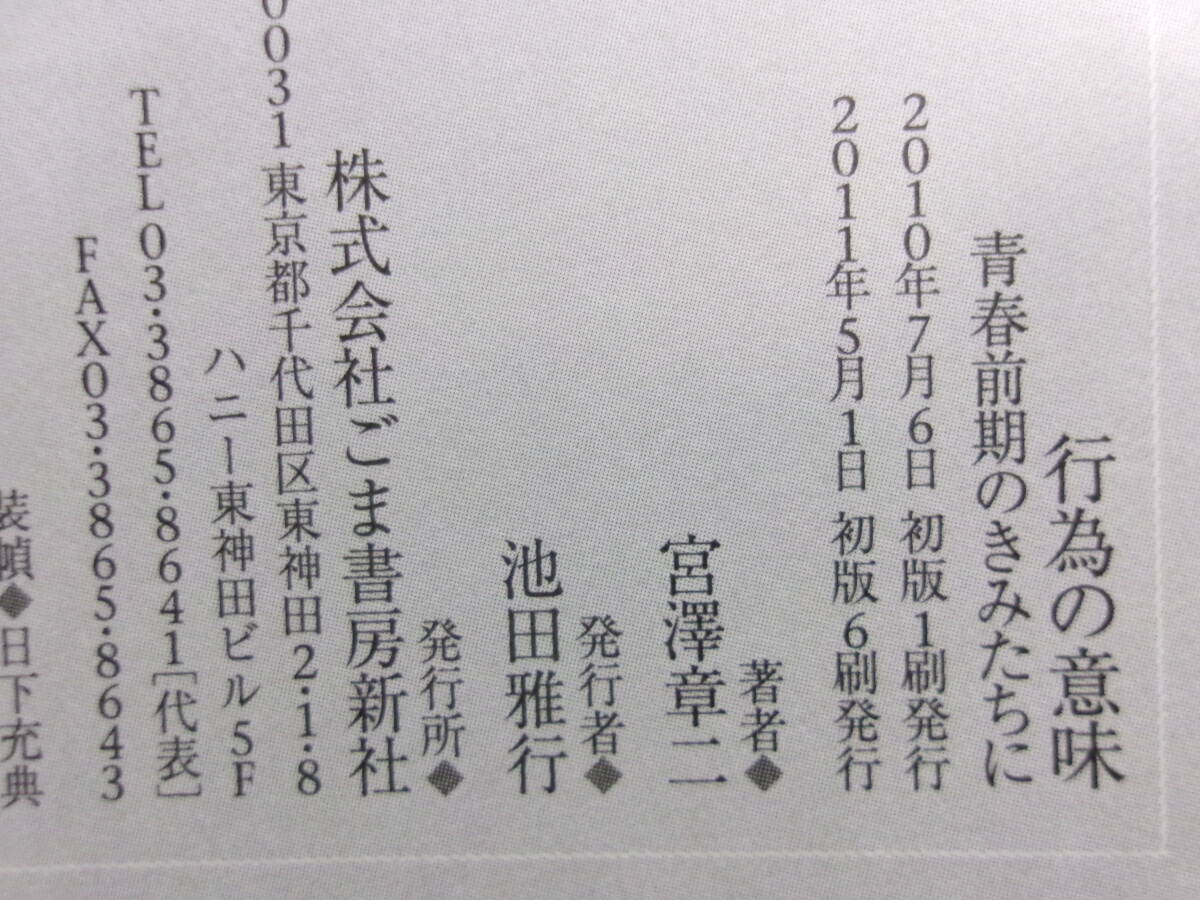 行為の意味
青春前期のきみたちに
2010年7月6日 初版1刷発行
2011年5月1日 初版6刷発行
著者◆
宮澤章二
発行者◆
池田雅行
発行所◆
株式会社ごま書房新社
0031 東京都千代田区東神田2・1・8
ハニー東神田ビル5F
TEL03・3865・8641[代表]
FAX03・3865・8643
装幀◆日下充典